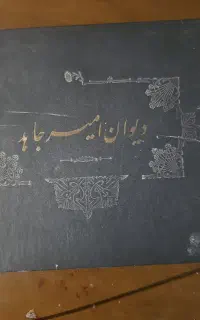 دیوان امیر جاهد